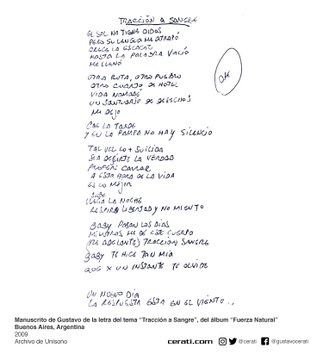 TRACCIÓN A SANGRE
EL SOL NO TIENE OIDOS
PERO SU LENGUA ME ATRAPÓ
CRUCÉ LA
HASTA LA PALABRA VACÍO
ME LLENÓ
OTRA RUTA, OTRO PUEBLO
OTRO CUARTO DE HOTEL
VIDA NOMADE
UN SANTUARIO DE DESECHOS
ME DEJO
CAE LA TARDE
Y EN LA PAMPA NO HAY SILENCIO
TAL VEZ LO + SUICIDA
SEA DECIRTE LA VERDAD
CAMBIAR
A ESTA HORA DE LA VIDA
ES LO MEJOR
LA NOCHE
RESPIRO LIBERTAD Y NO MIENTO
BABY PASAN LOS DIAS
DE ESTE CUERPO
(ME ADELANTE) TRACCION A SANGRE
BABY TE HICE TAN MIA
QUE X UN INSTANTE TE OLVIDE
UN NUEVO DIA
LA RESPUESTA ESTÁ EN EL VIENTO...
Manuscrito de Gustavo de la letra del tema "Tracción a Sangre", del álbum "Fuerza Natural"
Buenos Aires, Argentina
2009
Archivo de Unísono
cerati.com @cerati @gustavocerati